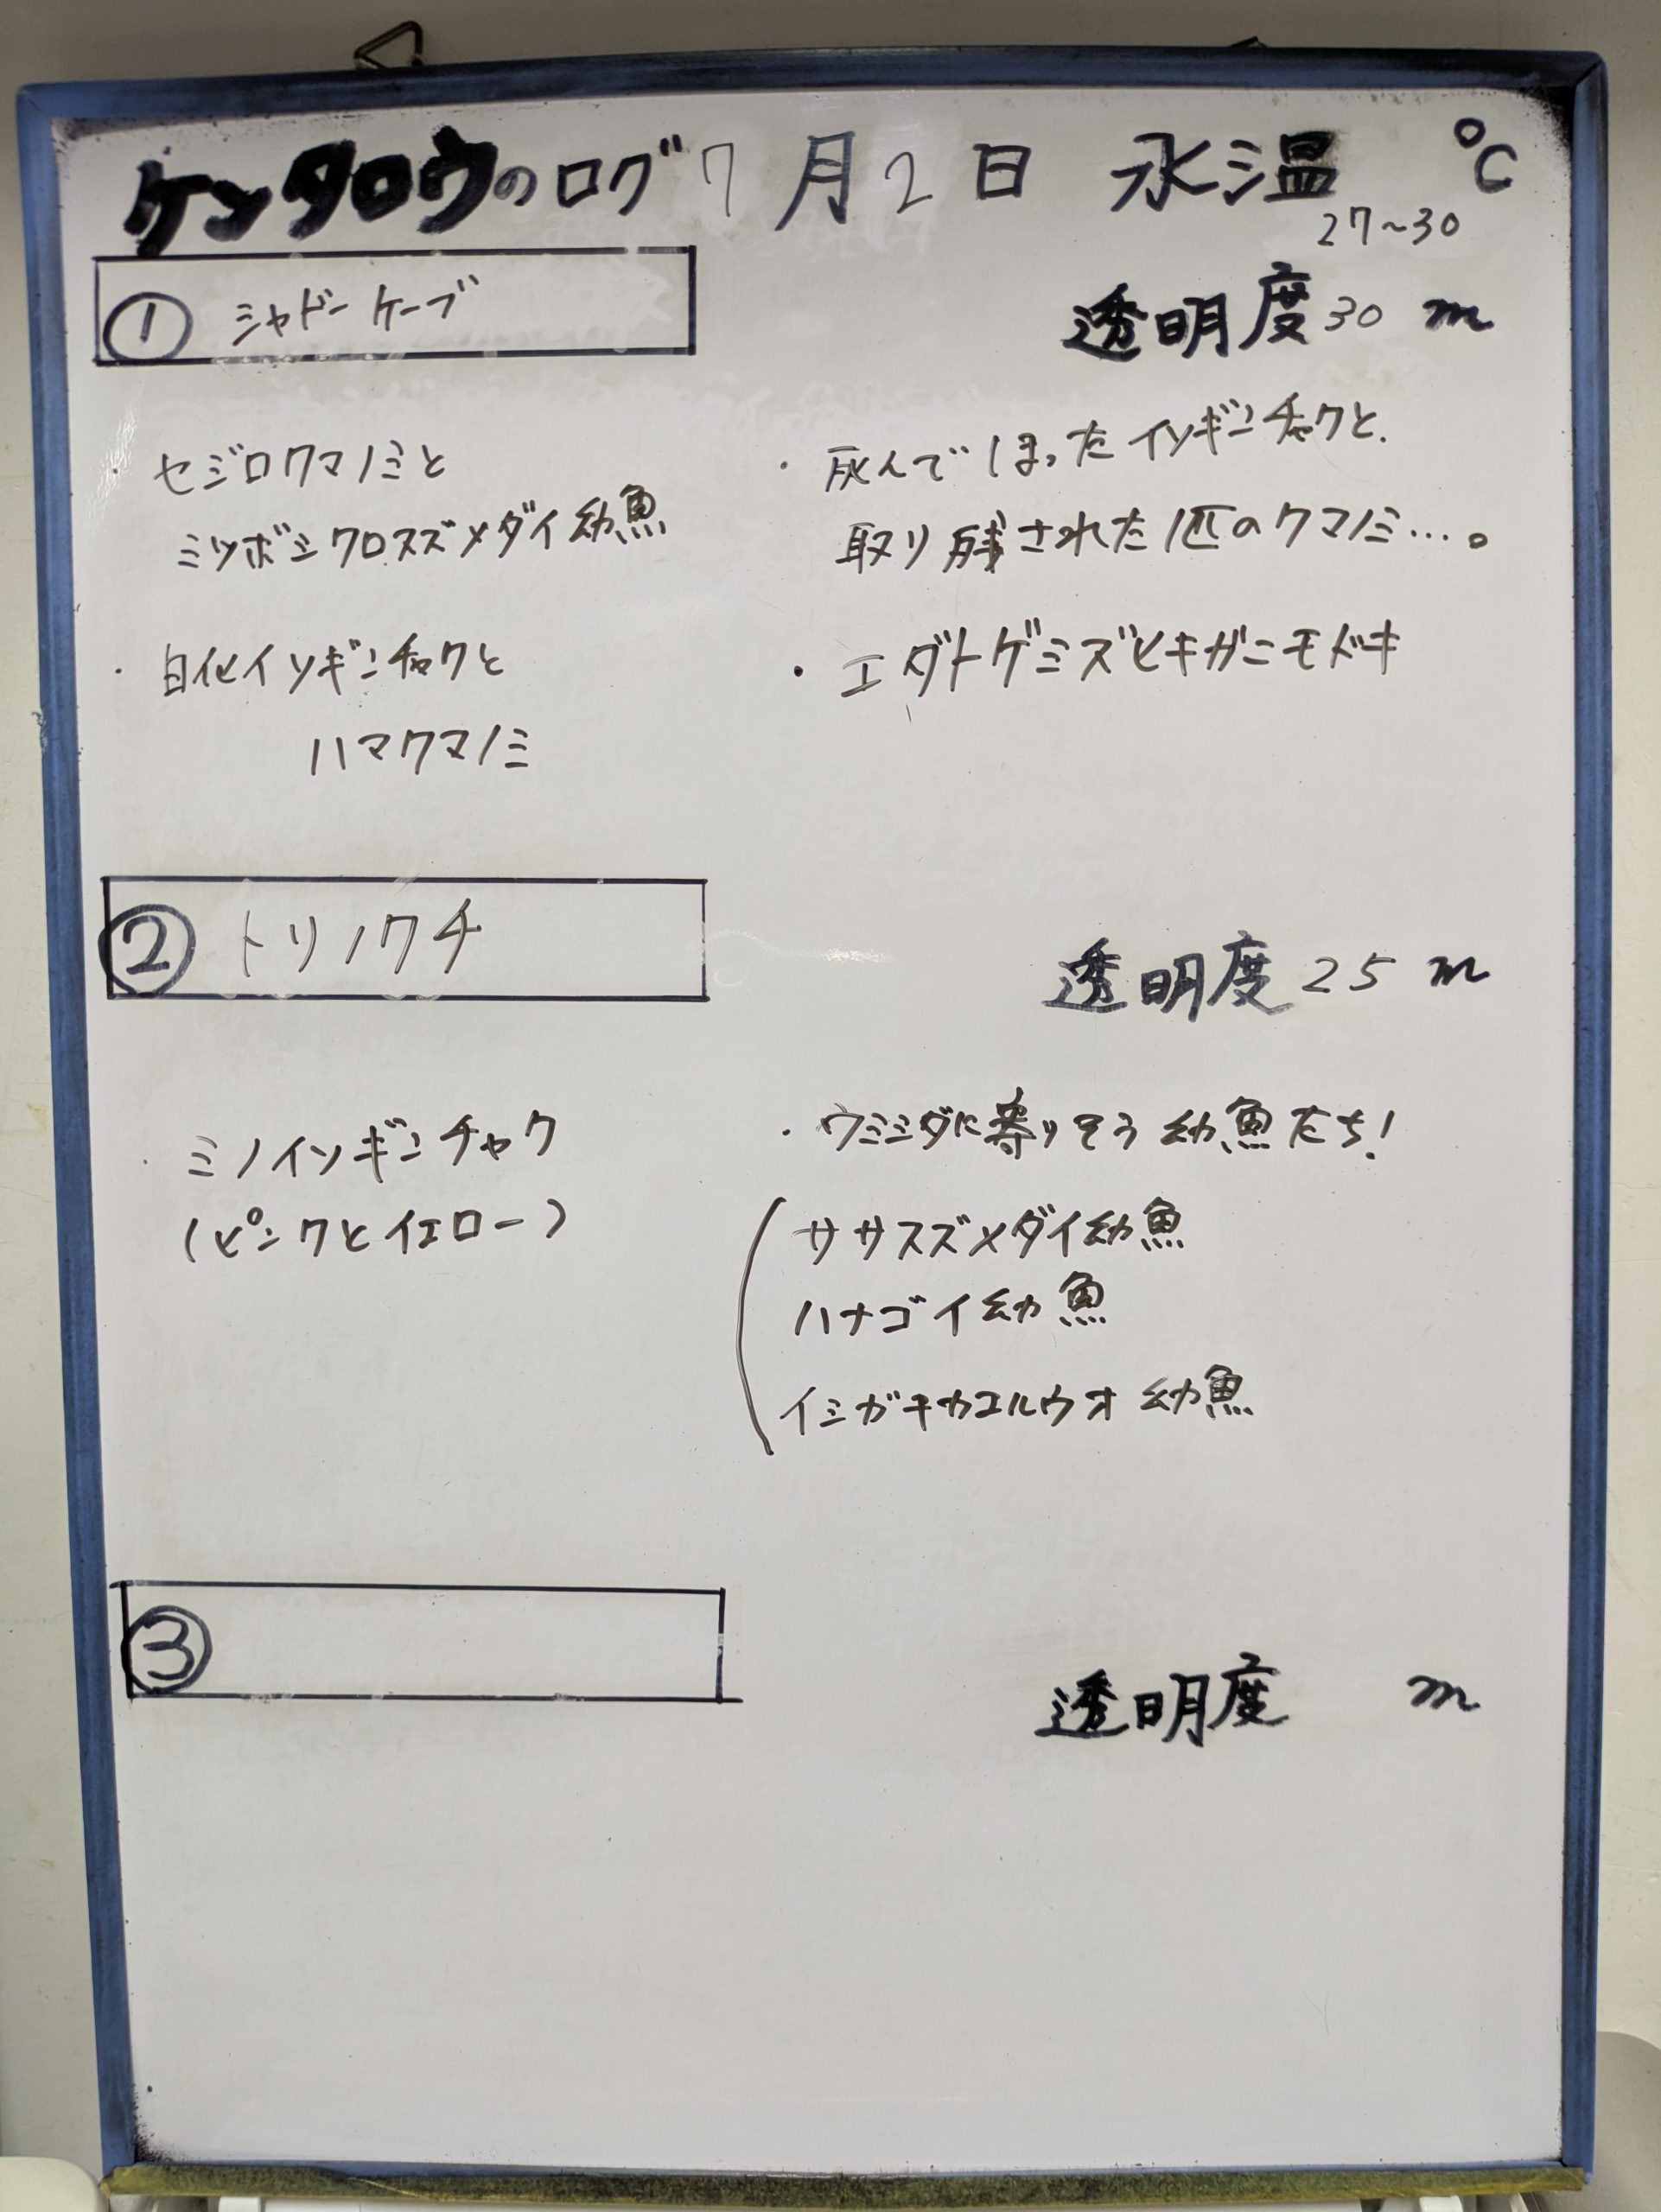 ケンタロウのログ 7月2日 水温 ℃
27~30
① シャドーケーブ
透明度 30 m
・セジロクマノミと
ミツボシクロスズメダイ幼魚
・白化イソギンチャクと
ハマクマノミ
・死んでしまったイソギンチャクと、
取り残された1匹のクマノミ…。
・エダトゲミズヒキガニモドキ
② トリノクチ
透明度 25 m
・ミノイソギンチャク
(ピンクとイエロー)
・ウミシダに寄りそう幼魚たち!
ササスズメダイ幼魚
ハナゴイ幼魚
イシガキカエルウオ幼魚
③
透明度 m